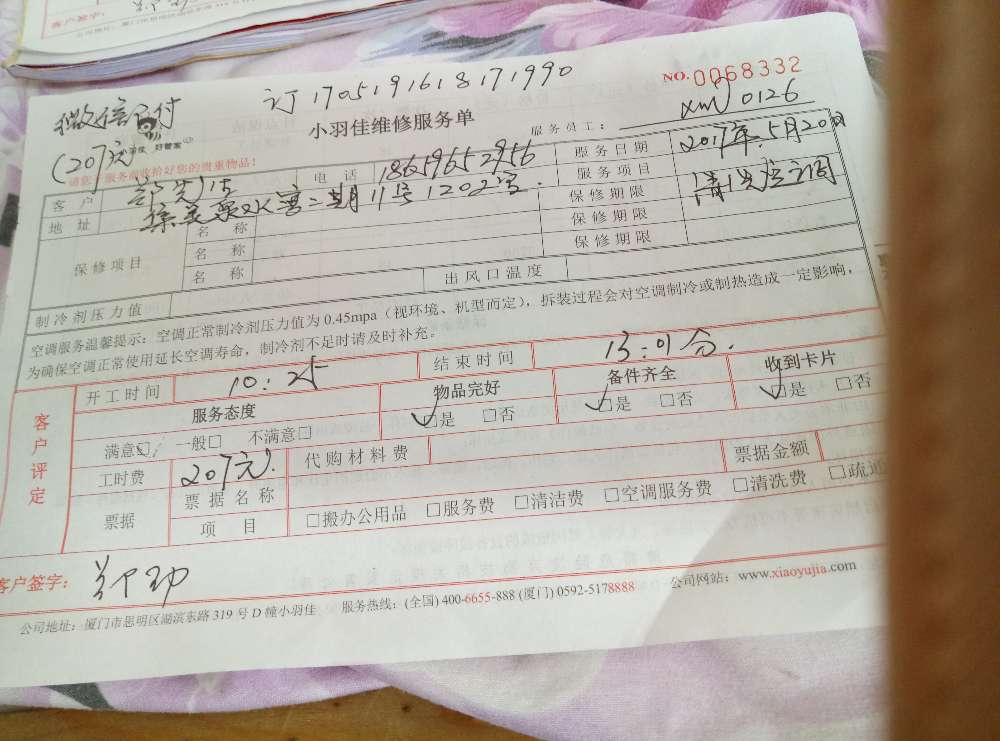 客户签字：
NO.0068332
订1705191618171990
微信已付
(207元)
小羽佳 好管家
小羽佳维修服务单
服务员工： xm 0126
请您 服务前收拾好您的贵重物品！
客户 郑先生 电话 18659652956 服务日期 2017年.5月20日
地址 二期11号1202室. 服务项目 清洗空调
保修项目 名称 保修期限
名称 保修期限
名称 保修期限
制冷剂压力值 出风口温度
空调服务温馨提示：空调正常制冷剂压力值为0.45mpa（视环境、机型而定），拆装过程会对空调制冷或制热造成一定影响，
为确保空调正常使用延长空调寿命，制冷剂不足时请及时补充。
客户评定 开工时间 10:25 结束时间 13:01分.
服务态度 物品完好 备件齐全 收到卡片
满意☑ 一般□ 不满意□ ☑是 □否 ☑是 □否 ☑是 □否
工时费 207元. 代购材料费 票据金额
票据 票据名称
项目 □搬办公用品 □服务费 □清洁费 □空调服务费 □清洗费 □疏通
客户签字：
公司地址：厦门市思明区湖滨东路319号D幢小羽佳 服务热线：(全国) 400-6655-888 (厦门) 0592-5178888 公司网站：www.xiaoyujia.com